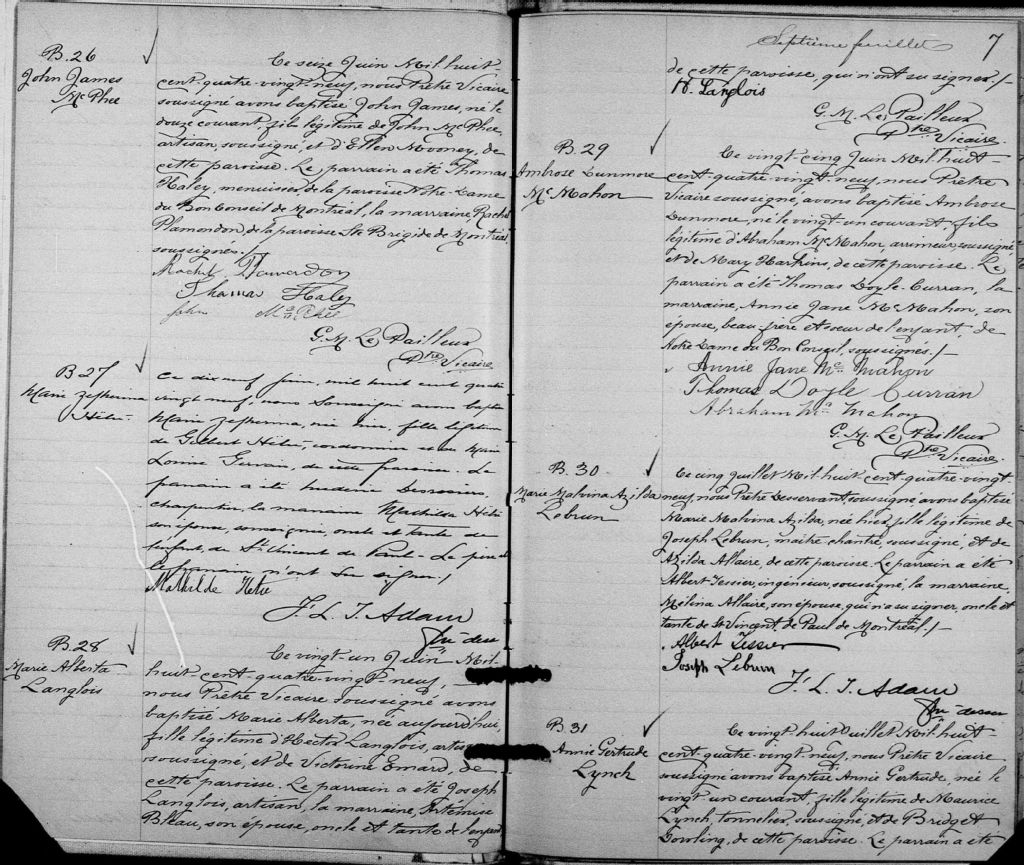 B.26
John James
McPhee
Ce seize Juin Mil huit-
cent-quatre-vingt-neuf, nous Prêtre Vicaire
soussigné avons baptisé John James, né le
douze courant, fils légitime de John McPhee,
artisan, soussigné, et d'Ellen Mooney, de
cette paroisse. Le parrain a été Thomas
Haley, menuisier de la paroisse Notre-Dame
du Bon Conseil de Montréal, la marraine, Rachel
Plamondon de la paroisse Ste Brigide de Montréal,
soussignés./
Thomas Haley
John McPhee
G. M. Le Pailleur
Ptre Vicaire
B 27
Marie Zephirina
Hétu
Ce dix neuf juin, mil huit cent quatre
vingt neuf, nous Soussigné avons baptisé
Marie Zephirina, née hier, fille légitime
de Gilbert Hétu, cordonnier et de Marie
Louise Gervais, de cette paroisse. Le
parrain a été
charpentier, la marraine Mathilde Hétu
son épouse, soussignée, oncle et tante de
l'enfant, de St Vincent de Paul - Le père et
le parrain n'ont su signer./
Mathilde Hetu
F. L. T. Adam
Ptre dess
B.28
Marie Alberta
Langlois
Ce vingt-un Juin Mil-
huit-cent-quatre-vingt-neuf,
nous Prêtre Vicaire soussigné avons
baptisé Marie Alberta, née aujourd'hui,
fille légitime d'Hector Langlois, artisan
soussigné, et de Victorine Emard, de
cette paroisse. Le parrain a été Joseph
Langlois, artisan, la marraine, Artémise
Bleau, son épouse, oncle et tante de l'enfant
Septième feuillet
7
de cette paroisse, qui n'ont su signer./-
H. Langlois
G. M. Le Pailleur
Ptre Vicaire.
B.29
Ambrose Dunmore
McMahon
Ce vingt-cinq Juin Mil huit-
cent-quatre-vingt-neuf, nous Prêtre
Vicaire soussigné, avons baptisé Ambrose
Dunmore, né le vingt-un courant, fils
légitime d'Abraham McMahon, arrimeur, soussigné,
et de Mary Harkins, de cette paroisse. Le
parrain a été Thomas Doyle-Curran, la
marraine, Annie Jane McMahon, son
épouse, beau-frère et soeur de l'enfant, de
Notre Dame du Bon Conseil, soussignés./-
Annie Jane McMahon
Thomas Doyle Curran
Abraham McMahon
G. M. Le Pailleur
Ptre Vicaire.
B.30
Marie Malvina Azilda
Lebrun
Ce cinq Juillet Mil-huit-cent-quatre-vingt-
neuf, nous Prêtre Desservant, soussigné avons baptisé
Marie Malvina Azilda, née hier, fille légitime de
Joseph Lebrun, maitre chantre, soussigné, et de
Azilda Allaire, de cette paroisse. Le parrain a été
Albert Tessier, ingénieur, soussigné, la marraine,
Mélina Allaire, son épouse, qui n'a su signer, oncle et
tante de St Vincent de Paul de Montréal./-
Albert Tessier
Joseph Lebrun
F. L. T. Adam
Ptre dess
B.31
Annie Gertrude
Lynch
Ce vingt-huit Juillet Mil-huit-
cent-quatre-vingt-neuf, nous Prêtre Vicaire
soussigné avons baptisé Annie Gertrude, née le
vingt-un courant, fille légitime de Maurice
Lynch, tonnelier, soussigné, et de Bridget
Gowling, de cette paroisse. Le parrain a été